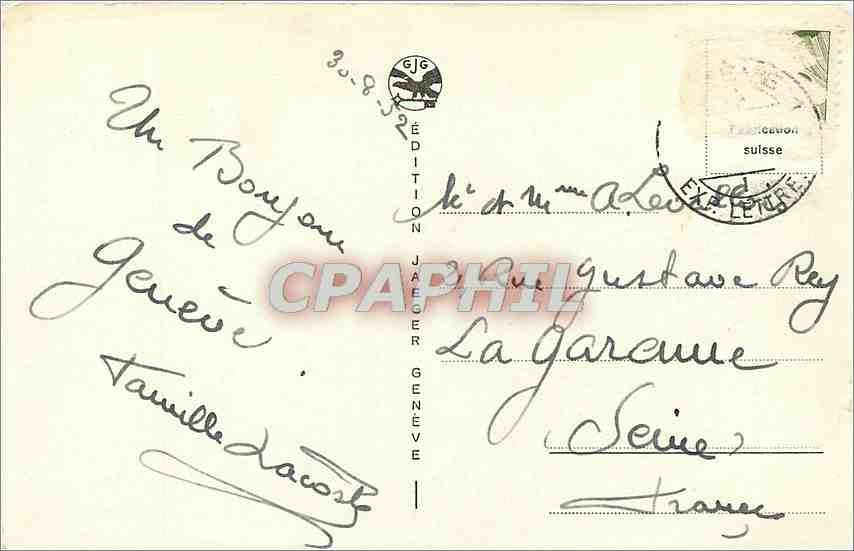 30-8-52
Un Bonjour
de
Genève.
Famille Lacoste
GJG
ÉDITION JAEGER GENÈVE
CPAPHIL
Fabrication
suisse
EXP. LETTRES
Mr et Mme A.
2 Rue Gustave Rey
La Garenne
(Seine)
France